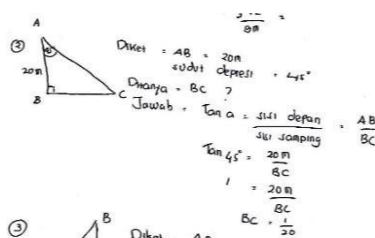 8m
=
②
A
20m
B
C
Diket = AB = 20m
sudut depresi = 45°
Ditanya = BC ?
Jawab = Tan a = sisi depan / sisi samping = AB / BC
Tan 45° = 20m / BC
1 = 20m / BC
BC = 1 / 20
③
B
Diket